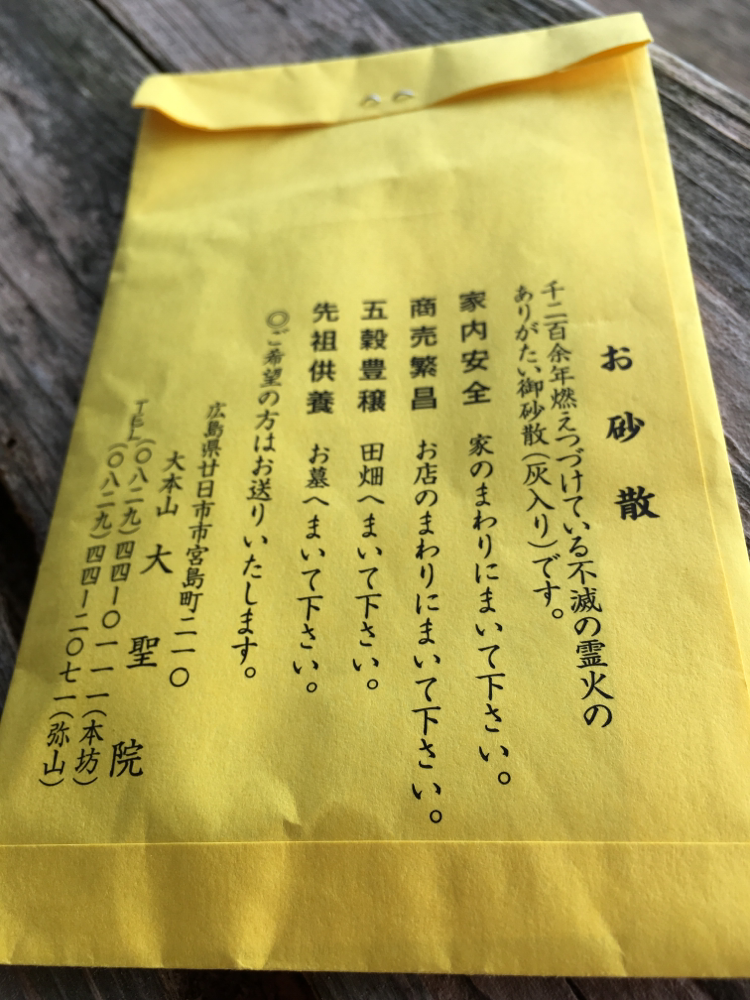 お砂散
千二百余年燃えつづけている不滅の霊火の
ありがたい御砂散(灰入り)です。
家内安全 家のまわりにまいて下さい。
商売繁昌 お店のまわりにまいて下さい。
五穀豊穣 田畑へまいて下さい。
先祖供養 お墓へまいて下さい。
◎ご希望の方はお送りいたします。
広島県廿日市市宮島町二一〇
大本山 大聖院
TEL(〇八二九)四四ー〇一一一(本坊)
(〇八二九)四四ー二〇七一(弥山)